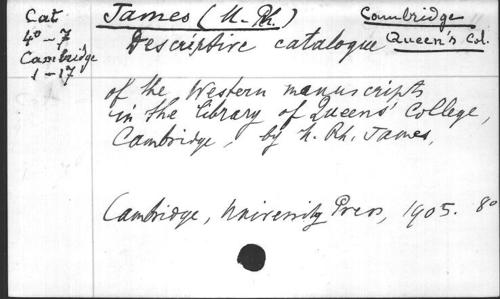 Cat
4° - 7
Cambridge
1 - 17
James (M. Rh.)
Cambridge
Queen's Col.
Descriptive catalogue
of the Western manuscripts
in the Library of Queens' College,
Cambridge, by M. Rh. James,
Cambridge, University Press, 1905. 8°